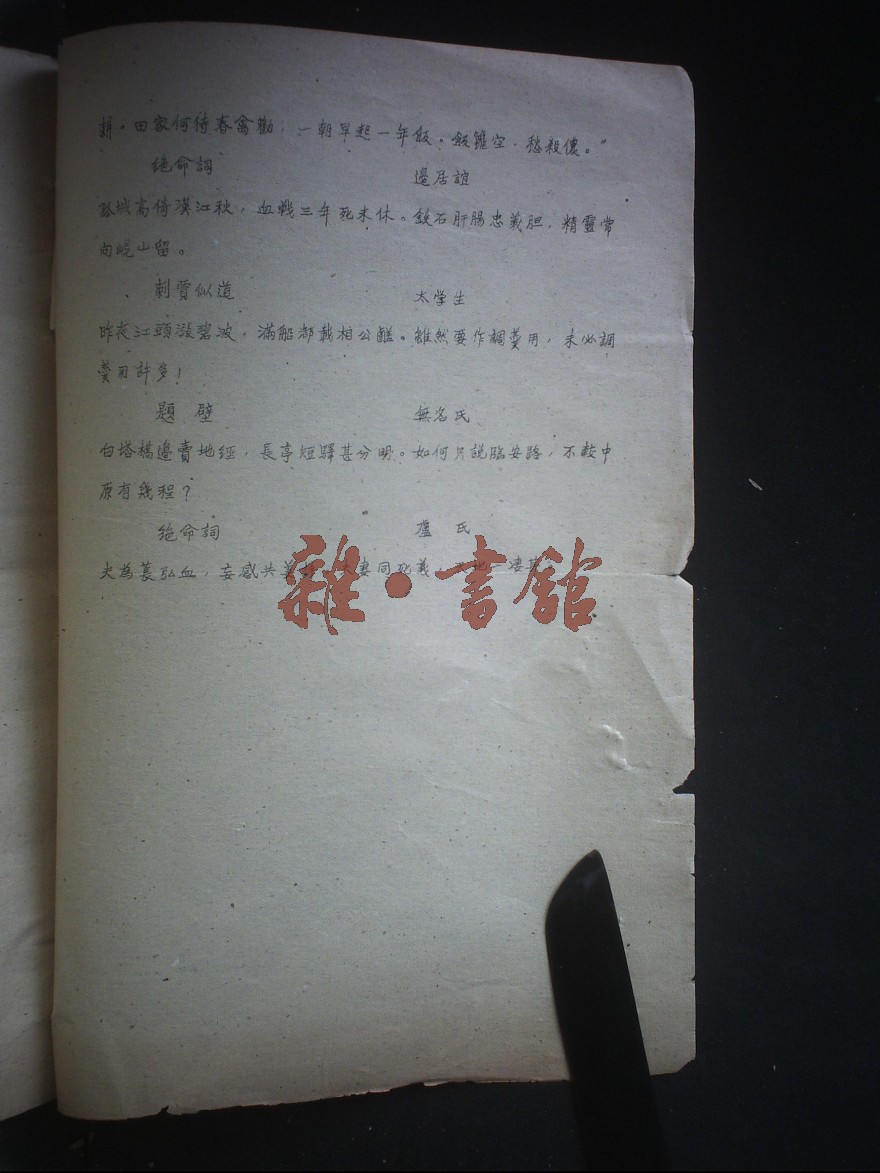 耕。田家何待春禽勸，一朝早起一年飯。飯籮空，愁殺儂。”
绝命詞 邊居誼
孤城高倚漢江秋，血戰三年死未休。鉄石肝腸忠義胆，精靈常
向峴山留。
刺賈似道 太学生
昨夜江頭湧碧波，滿船都載相公鹾。雖然要作調羹用，未必調
羹用許多！
題壁 無名氏
白塔橋邉賣地经，長亭短驛甚分明。如何只説臨安路，不較中
原有幾程？
绝命詞 盧氏
夫為萇弘血，妾感共姜 夫妻同死義，天地一凄其。
雜·書舘